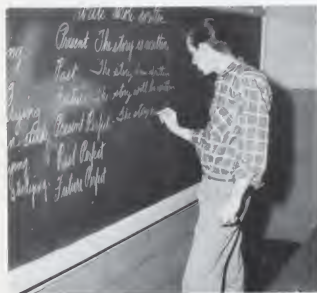 write wrote written
Present The story is written
Past The story was written
Future The story will be written
Present Perfect - The story
Past Perfect
studying Future Perfect